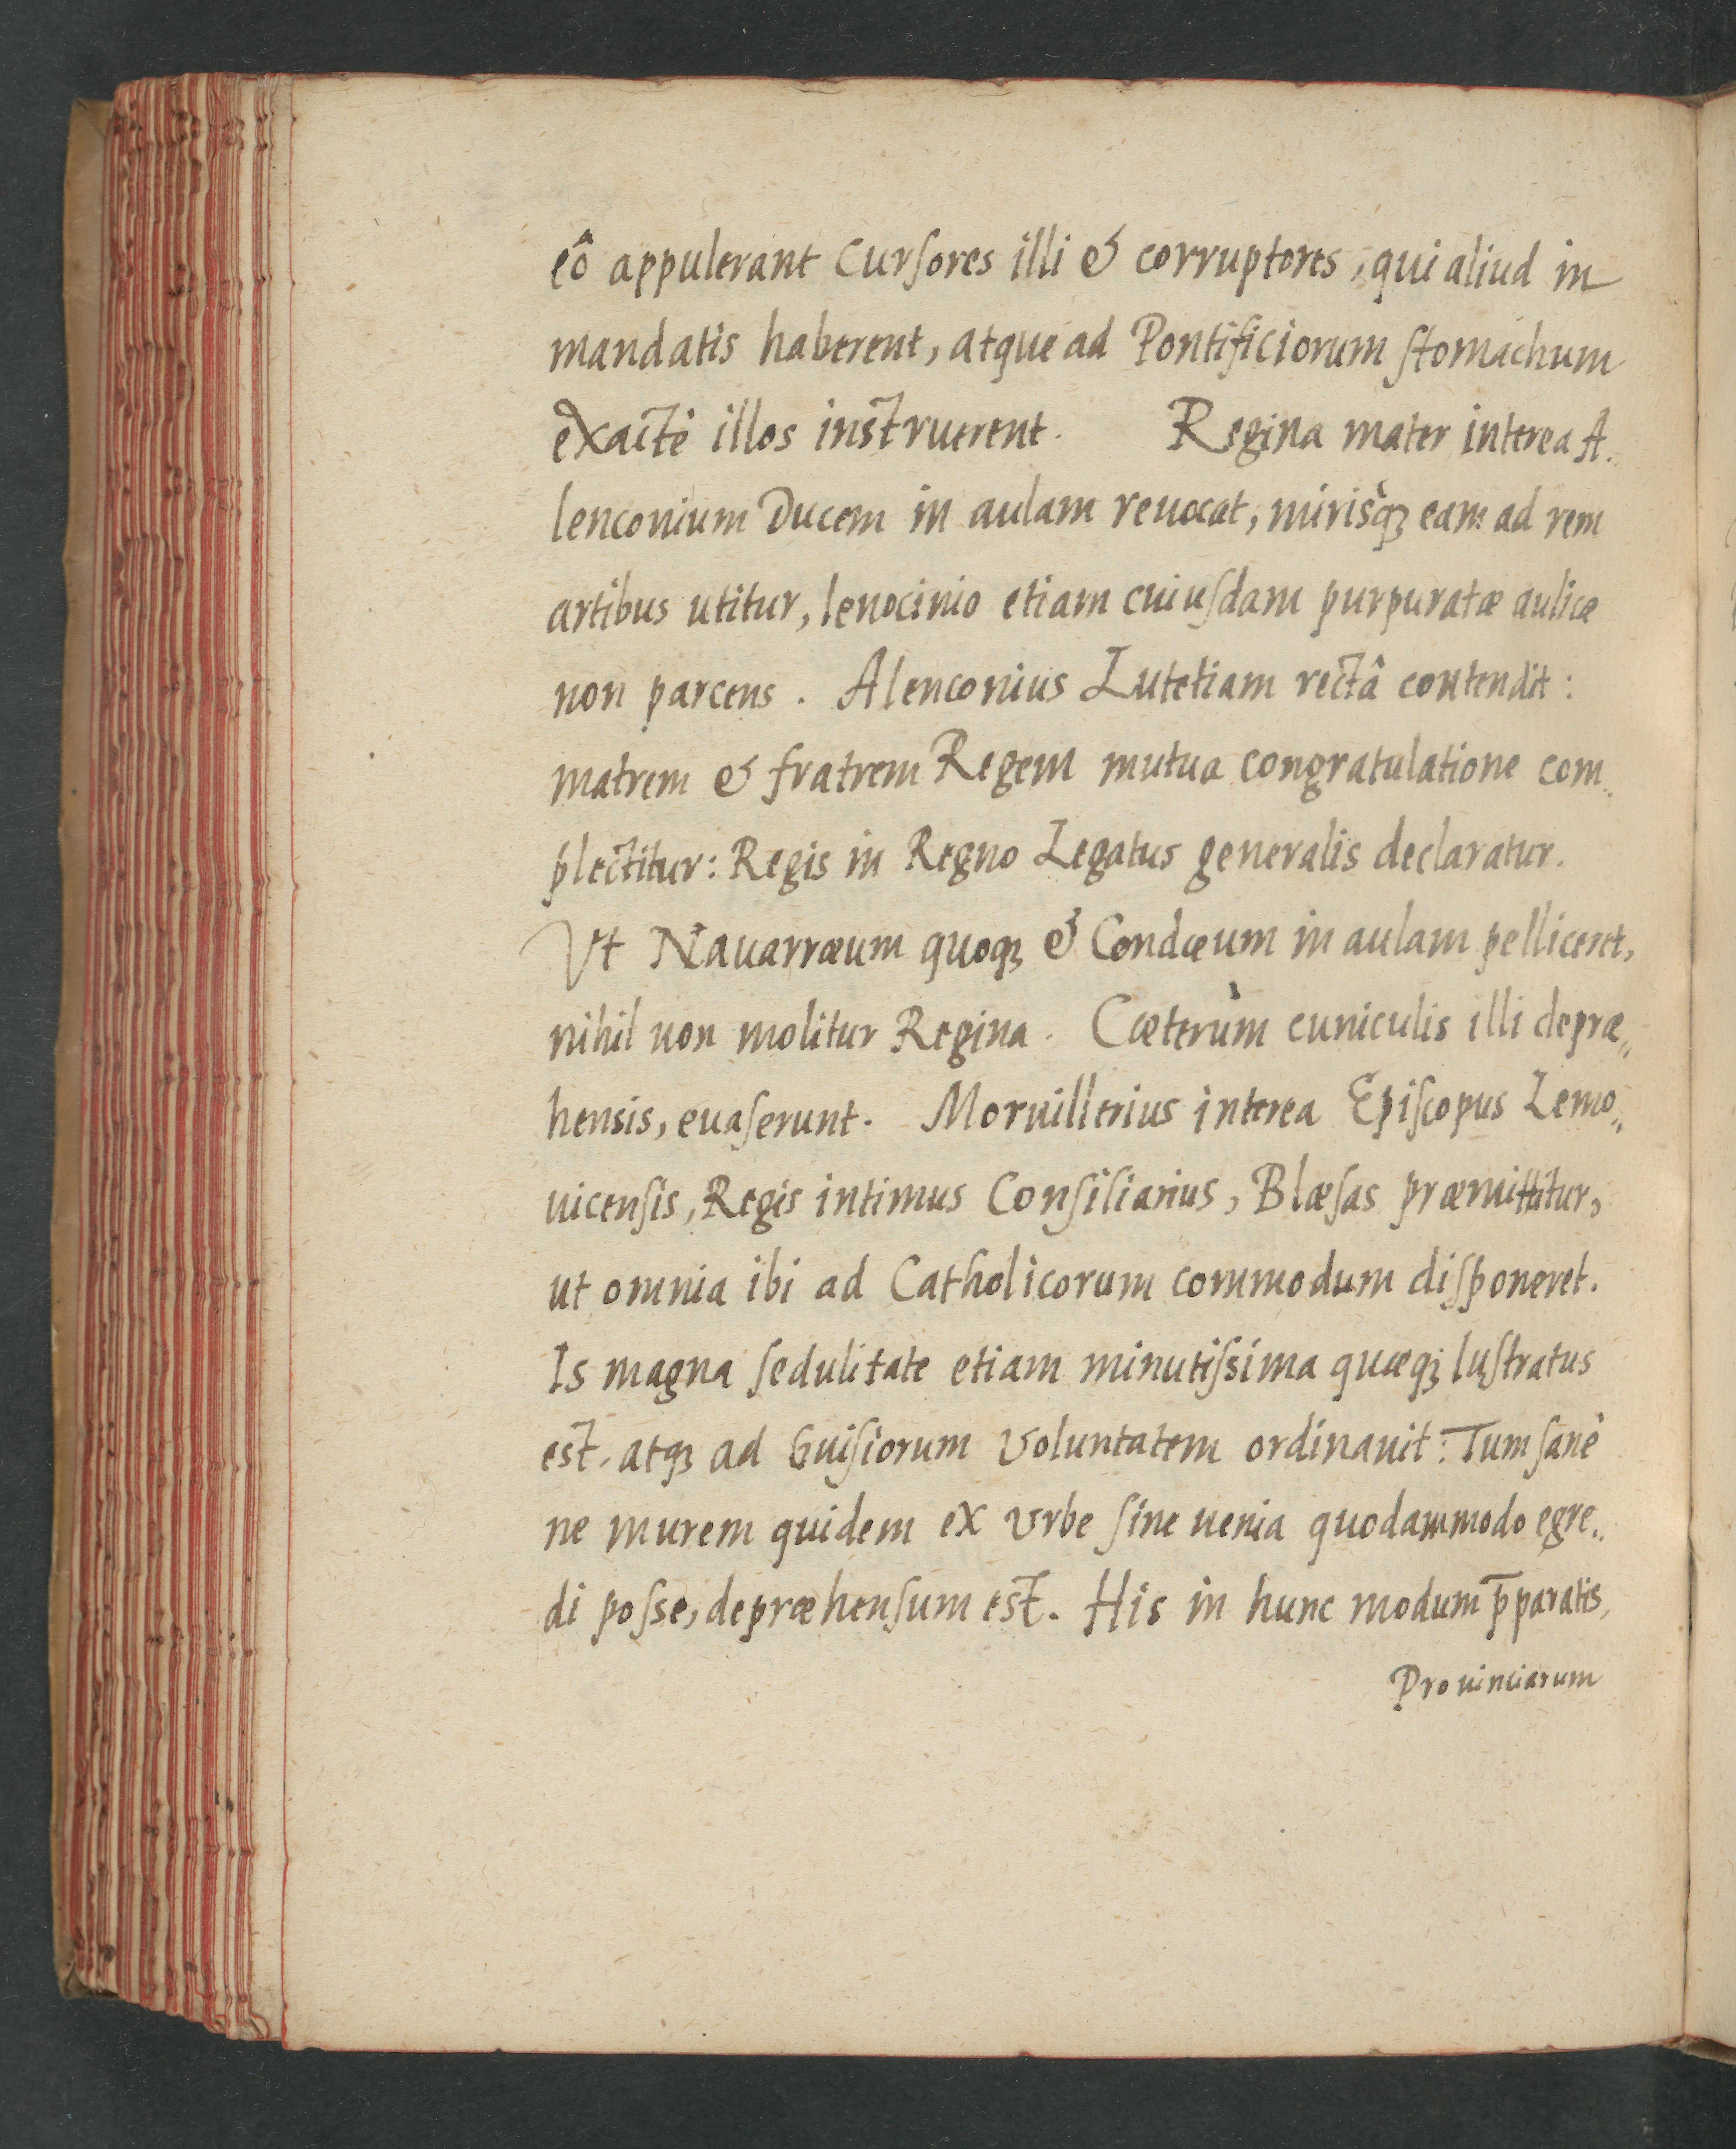 eô appulerant Cursores illi & corruptores, qui aliud in
mandatis haberent, atque ad Pontificiorum stomachum
exactè illos instruerent. Regina mater interea A..
lenconium Ducem in aulam reuocat, mirisq́ꝫ eam ad rem
artibus utitur, lenocinio etiam cuiusdam purpuratæ aulicæ
non parcens. Alenconius Lutetiam rectâ contendit:
matrem & fratrem Regem mutua congratulatione com..
plectitur: Regis in Regno Legatus generalis declaratur.
Vt Nauarræum quoqꝫ & Condæum in aulam pelliceret,
nihil non molitur Regina. Cæterùm cuniculis illi depræ„
hensis, euaserunt. Moruillerius interea Episcopus Lemo„
uicensis, Regis intimus Consiliarius, Blæsas præmittitur,
ut omnia ibi ad Catholicorum commodum disponeret.
Is magna sedulitate etiam minutissima quæqꝫ lustratus
est, atqꝫ ad Guisiorum voluntatem ordinauit: Tum sanè
ne murem quidem ex vrbe sine uenia quodammodo egre..
di posse, depræhensum est. His in hunc modum p̄paratis,
Prouinciarum